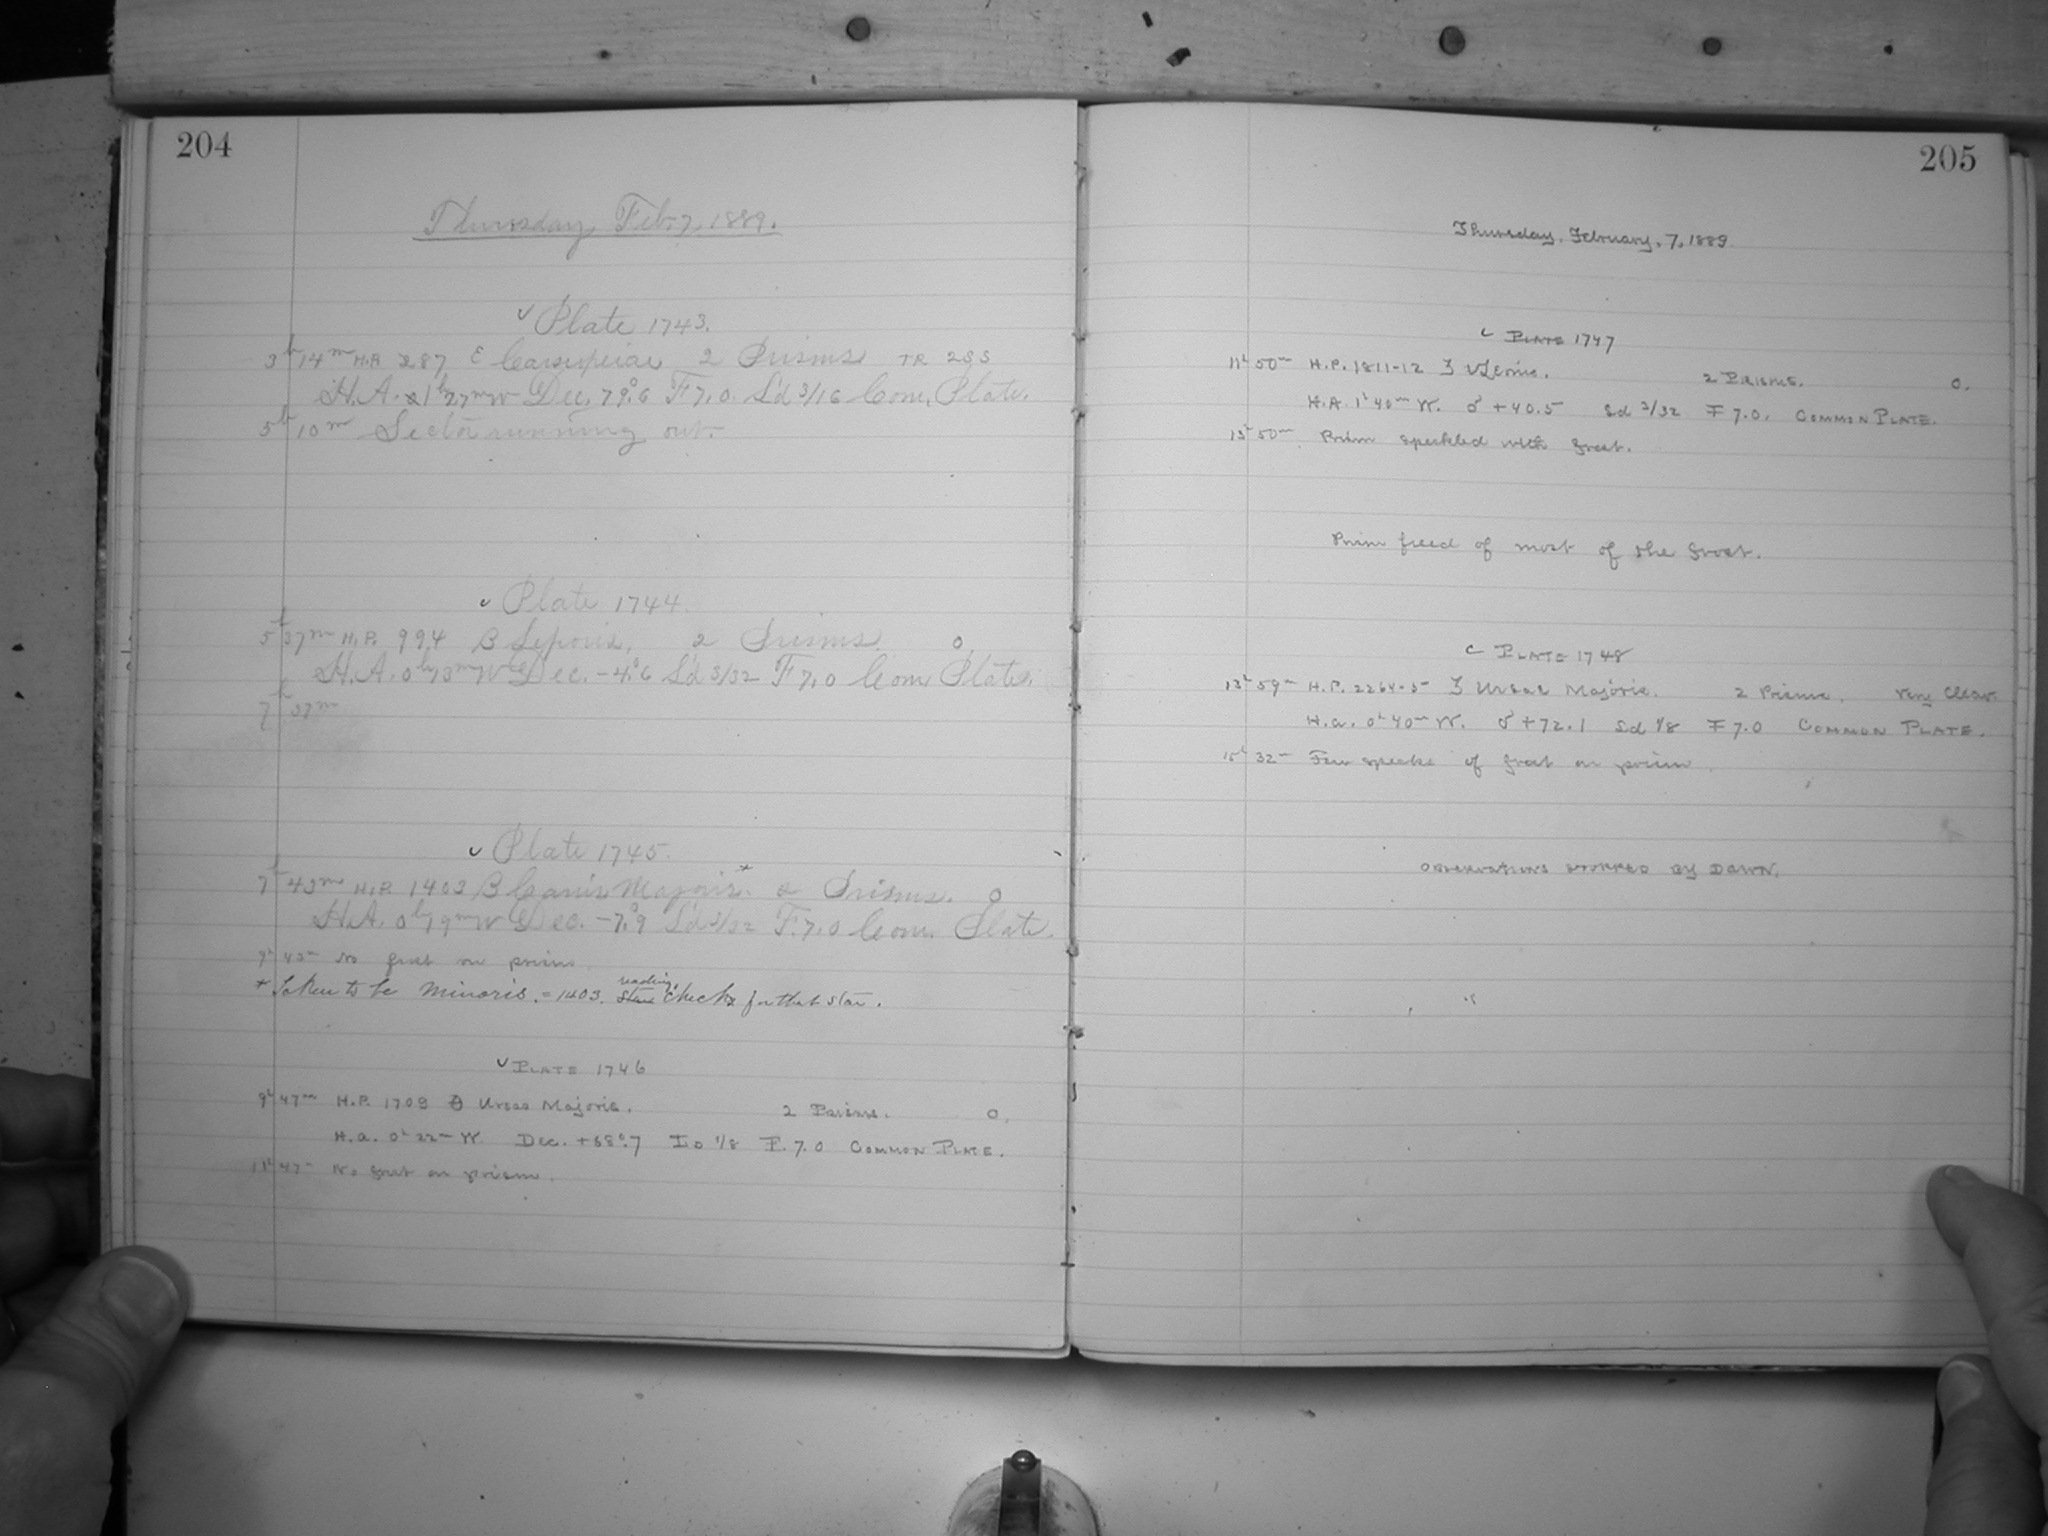 204
Thursday, Feb. 7, 1889.
Plate 1743.
3h 14m H.P. 287 ε Cassiopeiae 2 Prisms TR 2SS
H.A. 1h 27m W Dec. 79°.6 F 7.0 S'd 3/16 Com. Plate.
5h 10m Sector running out.
Plate 1744.
5h 37m H.P. 994 B Leporis, 2 Prisms. 0
H.A. 0h 13m W Dec. -4°.6 S'd 3/32 F 7.0 Com. Plate.
7h 37m
Plate 1745.
7h 43m H.P. 1403 B Canis Majoris* 2 Prisms. 0
H.A. 0h 19m W Dec. -7°.9 S'd 3/32 F. 7.0 Com. Plate.
9h 43m No frost on prism.
* Taken to be Minoris. = 1403. reading checks for that star.
PLATE 1746
9h 47m H.P. 1709 θ Ursae Majoris. 2 Prisms. 0.
H.a. 0h 22m W. Dec. +68°.7 SD 1/8 F. 7.0 COMMON PLATE.
11h 47m No frost on prism.
205
Thursday, February, 7, 1889
PLATE 1747
11h 50m H.P. 1811-12 2 PRISMS. 0.
H.A. 1h 40m W. δ +40.5 Sd 3/32 F 7.0. COMMON PLATE.
13h 50m Prism speckled with frost.
Prism freed of most of the frost.
PLATE 1748
13h 59m H.P. 2264-5 ζ Ursae Majoris. 2 Prisms. Very Clear.
H.a. 0h 40m W. δ +72.1 Sd 1/8 F 7.0 COMMON PLATE.
15h 32m Few specks of frost on prism.
OBSERVATIONS STOPPED BY DAWN.